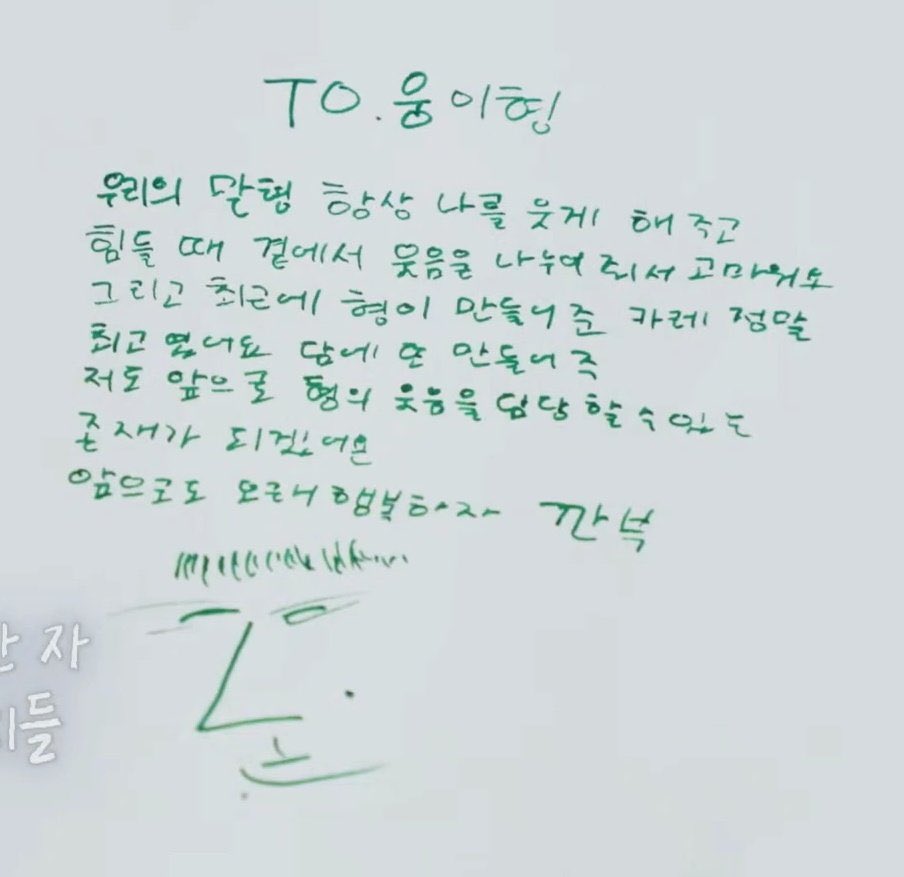 TO. 웅이형
우리의 맏형 항상 나를 웃게 해 주고
힘들 때 곁에서 웃음을 나누어 줘서 고마워요
그리고 최근에 형이 만들어 준 카레 정말
최고 였어요 담에 또 만들어 주
저도 앞으로 형의 웃음을 담당 할 수 있는
존재가 되겠어요
앞으로도 오래 행복하자 깐부
자
들